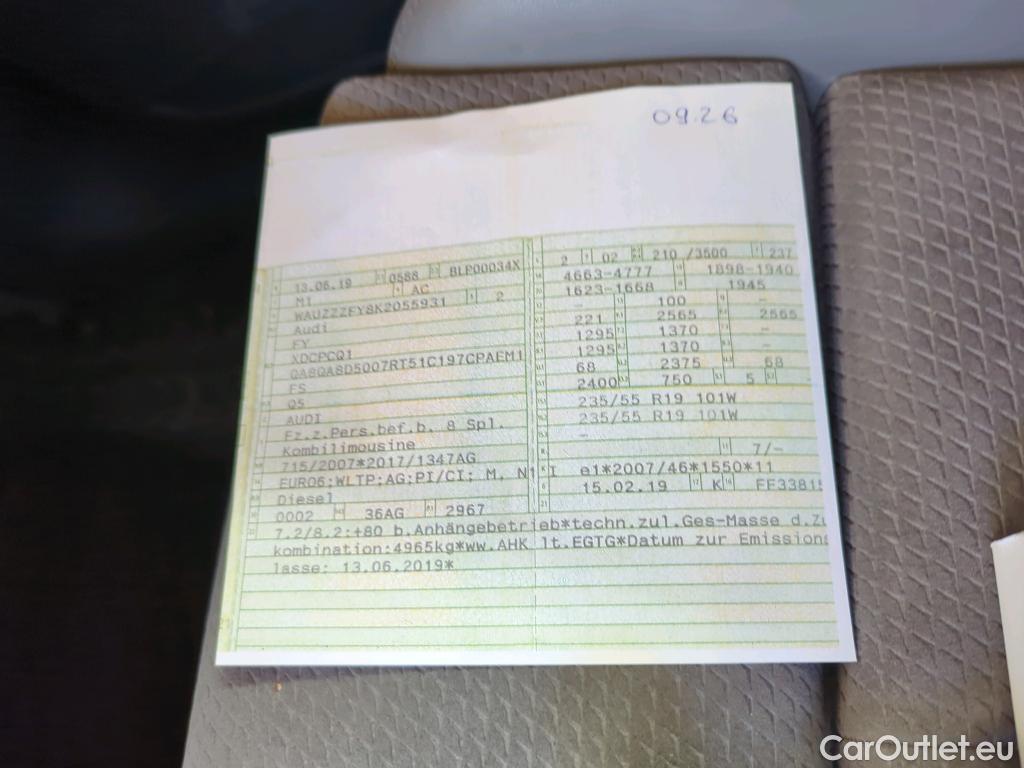 09.26
13.06.19 0588 BLP00034X
M1 AC
WAUZZZFY8K2055931 2
Audi
FY
XDCPCQ1
QA8QA8D5007RT51C197CPAEM1
FS
Q5
AUDI
Fz.z.Pers.bef.b. 8 Spl.
Kombilimousine
715/2007*2017/1347AG
EURO6;WLTP;AG;PI/CI; M, N1 I
Diesel
0002 36AG 2967
2 02 210 /3500 237
4663-4777 1898-1940
1623-1668 1945
- 100 -
221 2565 2565
1295 1370 -
1295 1370
68 2375 68
2400 750 5 -
235/55 R19 101W
235/55 R19 101W
-
7/-
e1*2007/46*1550*11
15.02.19 K FF33815
7.2/8.2:+80 b.Anhängebetrieb*techn.zul.Ges-Masse d.Zu
kombination:4965kg*ww.AHK lt.EGTG*Datum zur Emissions
lasse: 13.06.2019*
CarOutlet.eu